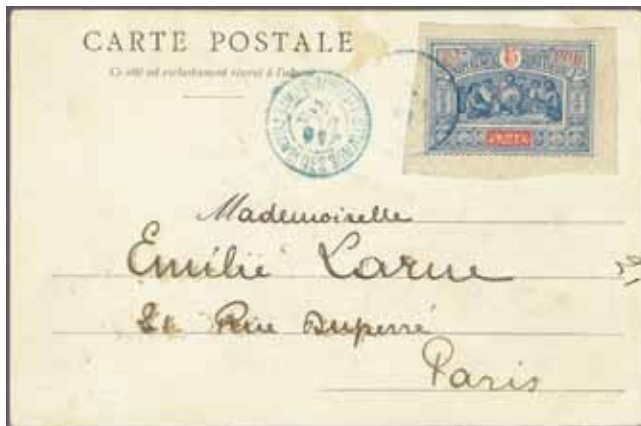 CARTE POSTALE
Ce côté est exclusivement réservé à l'adresse
5
Mademoiselle
Emilie Larue
Rue Duperré
Paris